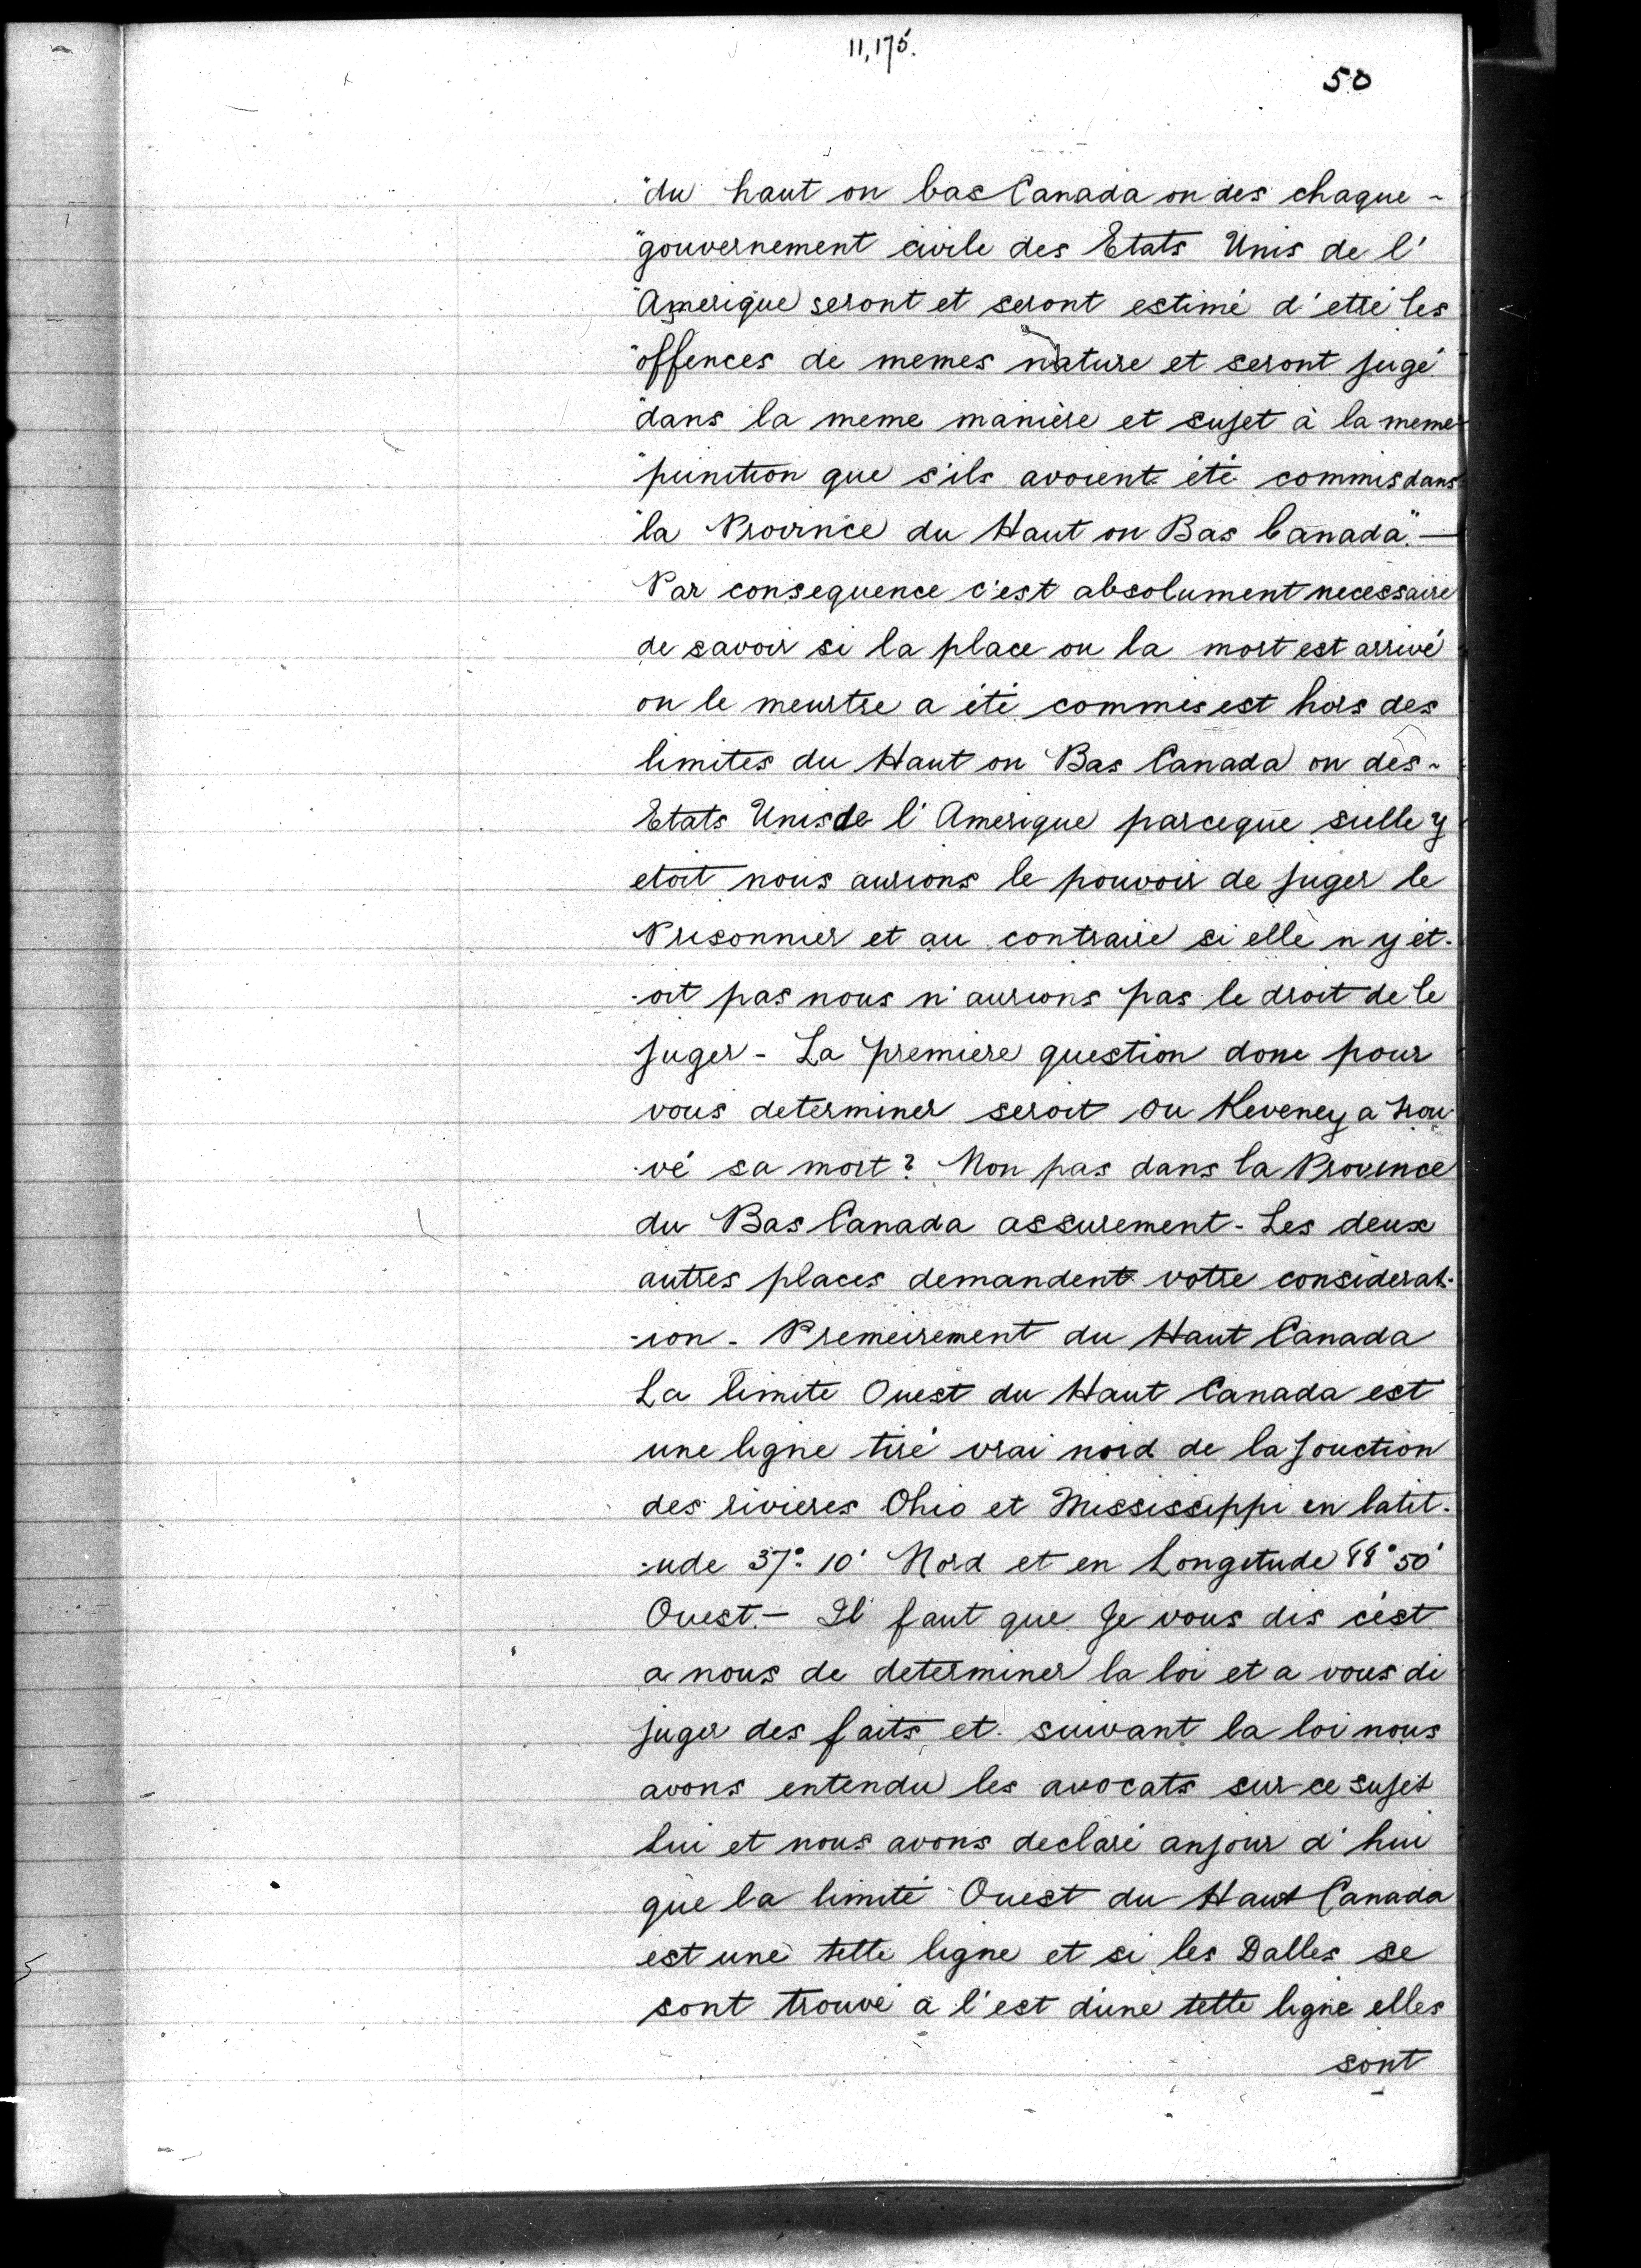 11,175.
50
"du haut ou bas Canada ou des chaque -
"gouvernement civile des Etats Unis de l'
"Amerique seront et seront estimé d'etré les
"offences de memes nature et seront jugé
"dans la meme manière et sujet à la meme
"punition que s'ils avoient été commis dans
"la Province du Haut ou Bas Canada". —
Par consequence c'est absolument necessaire
de savoir si la place ou la mort est arrivé
ou le meurtre a été commis est hors des
limites du Haut ou Bas Canada ou des -
Etats Unis de l'Amerique parceque si elle y
etoit nous aurions le pouvoir de juger le
Prisonnier et au contraire si elle n y ét-
-oit pas nous n'aurions pas le droit de le
juger - La premiere question donc pour
vous determiner seroit ou Keveney a trou-
-vé sa mort? Non pas dans la Province
du Bas Canada assurement - Les deux
autres places demandent votre considerat-
-ion - Premeirement du Haut Canada
La limite Ouest du Haut Canada est
une ligne tiré vrai nord de la jouction
des rivieres Ohio et Mississippi en latit-
-ude 37° 10' Nord et en Longitude 88° 50'
Ouest. - Il faut que je vous dis c'est
a nous de determiner la loi et a vous di
juger des faits et suivant la loi nous
avons entendu les avocats sur ce sujet
lui et nous avons declaré anjour d'hui
que la limité Ouest du Haut Canada
est une telle ligne et si les Dalles se
sont trouvé a l'est d'une telle ligne elles
sont